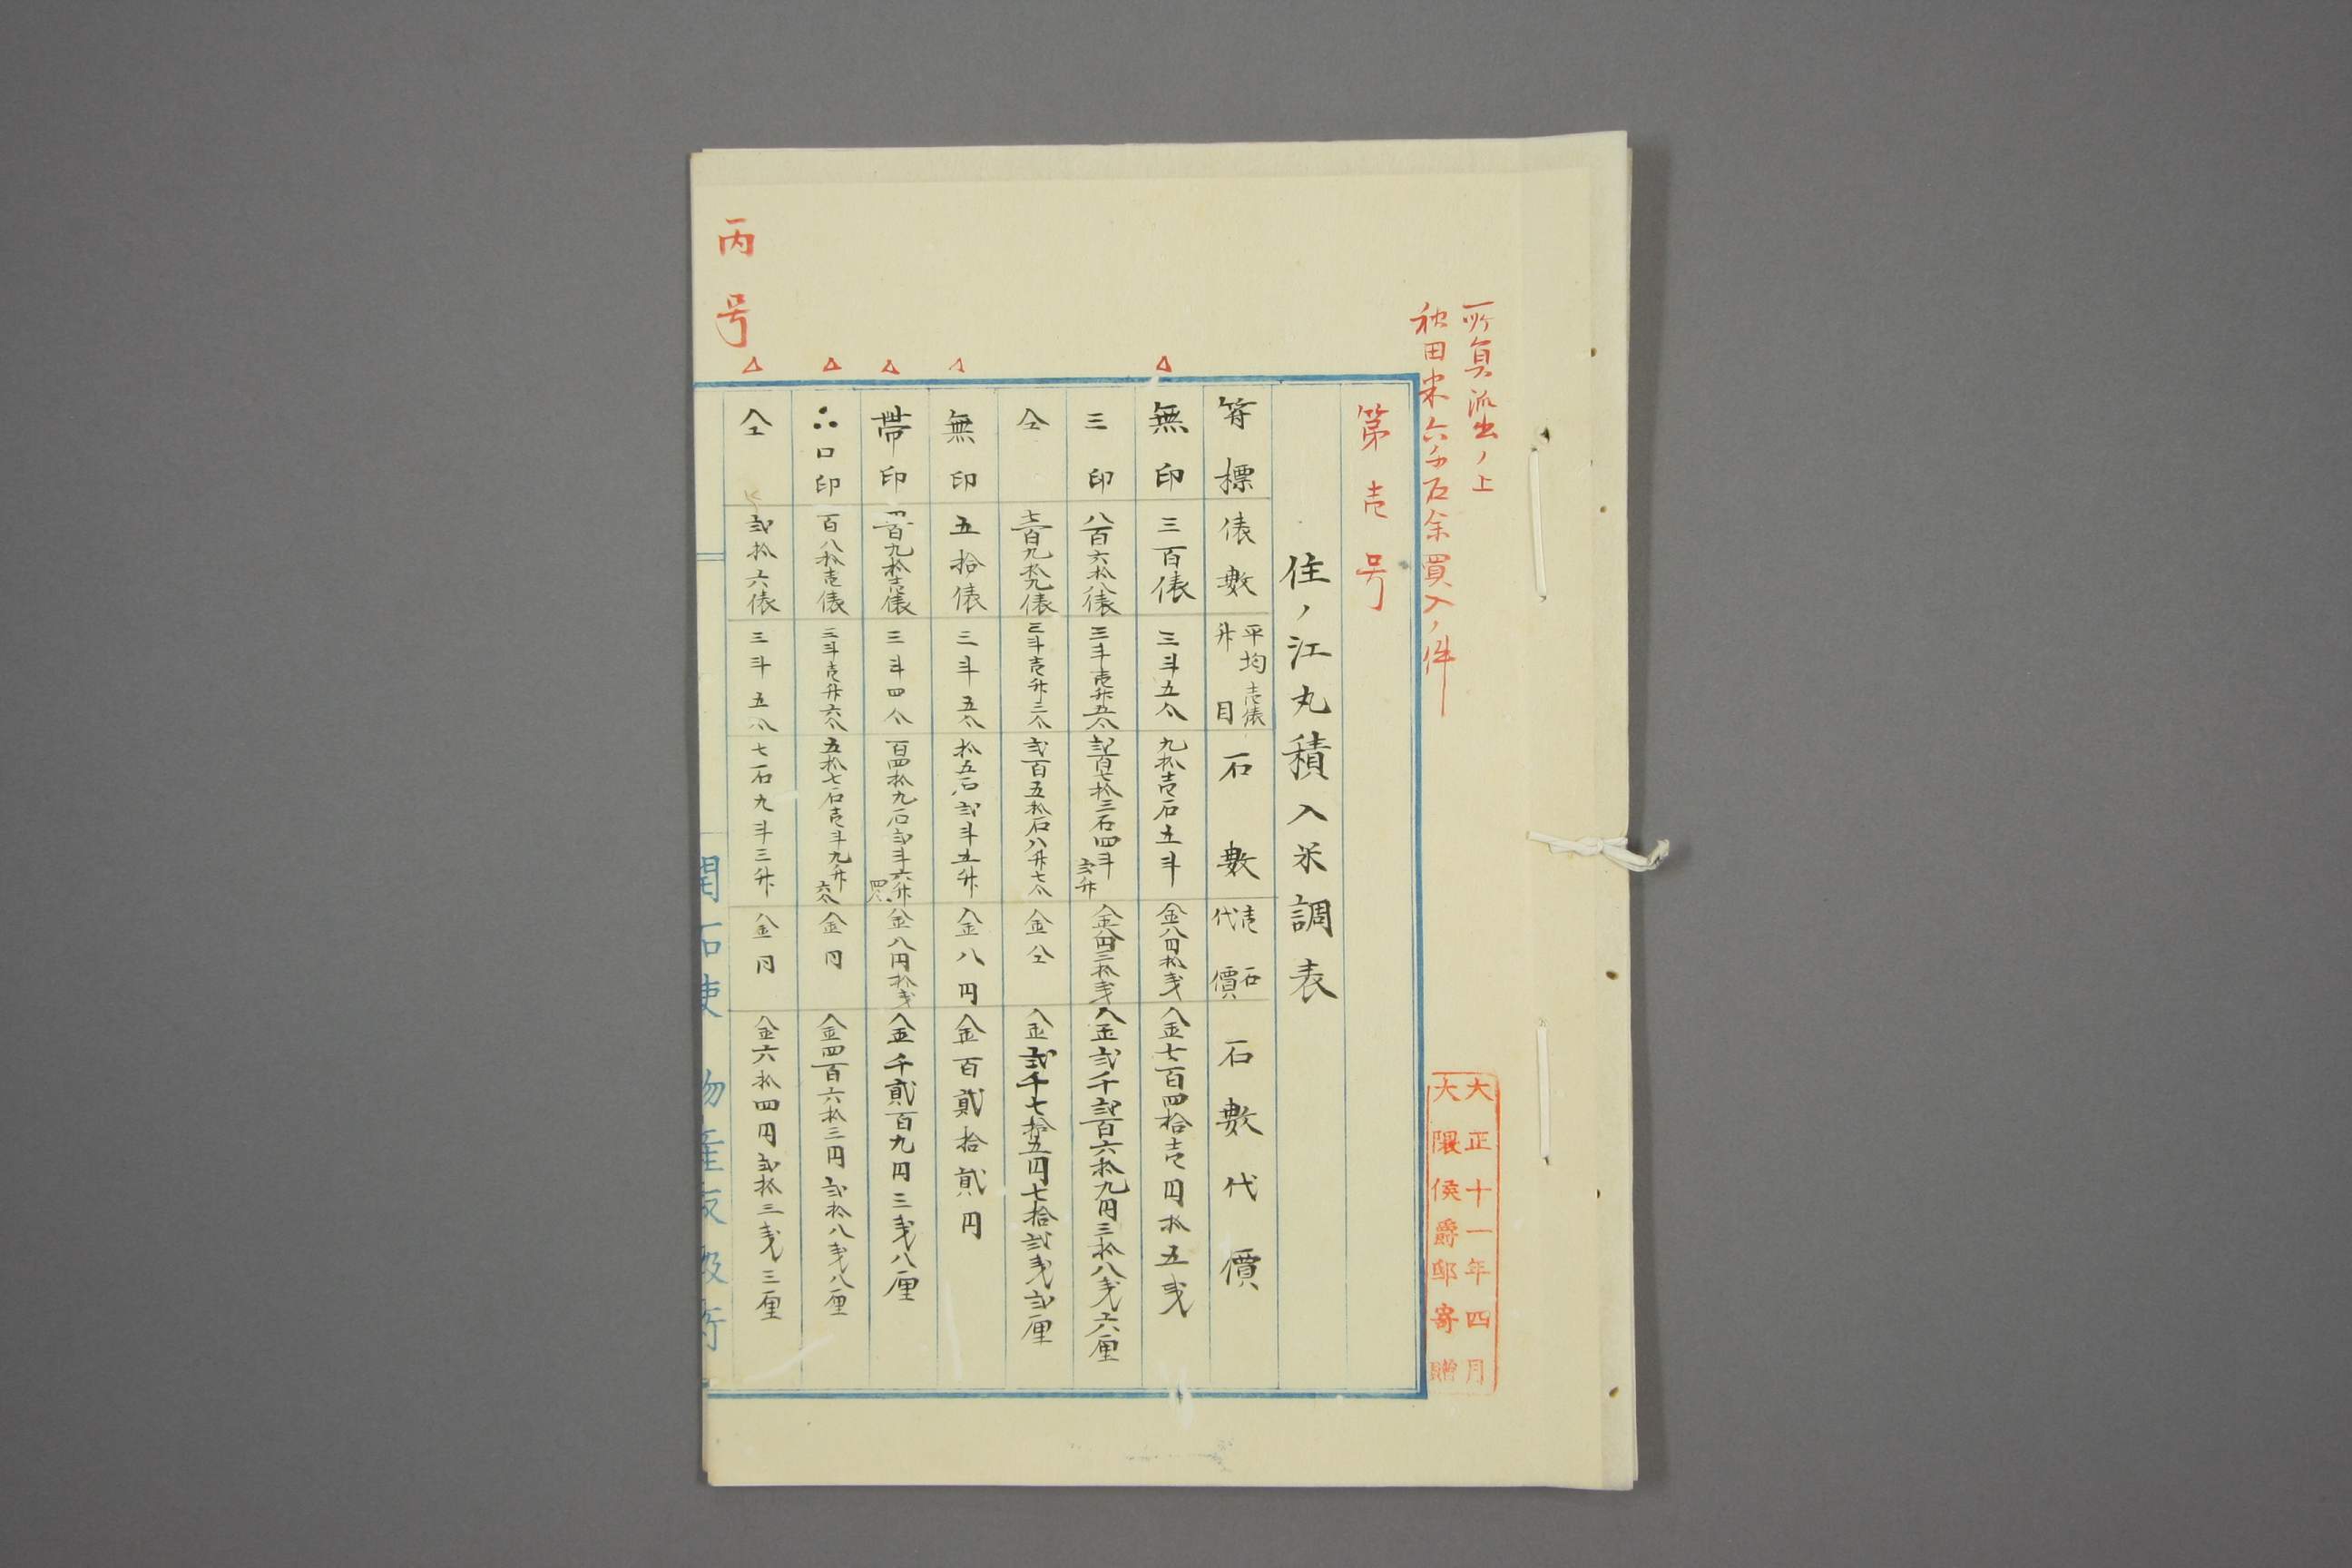 所員派出ノ上
秋田米六千石余買入ノ件
大正十一年四月
大隈侯爵邸寄贈
第壱号
住ノ江丸積入米調表
符標 俵數 平均壱俵升目 石數 壱石代價 石數代價
△ 無印 三百俵 三斗五合 九拾壱石五斗 金八円拾戔 金七百四拾壱円拾五戔
三印 八百六拾八俵 三斗壱升五合 弐百七拾三石四斗弐升 金八円三拾戔 金弐千弐百六拾九円三拾八戔六厘
仝 七百九拾九俵 三斗壱升三合 弐百五拾石八升七合 金仝 金弐千七拾五円七拾弐戔弐厘
△ 無印 五拾俵 三斗五合 拾五石弐斗五升 金八円 金百貳拾貳円
△ 帯印 四百九拾壱俵 三斗四合 百四拾九石弐斗六升四合 金八円拾戔 金千貳百九円三戔八厘
△ ∴口印 百八拾壱俵 三斗壱升六合 五拾七石壱斗九升六合 金同 金四百六拾三円弐拾八戔八厘
△ 仝 弐拾六俵 三斗五合 七石九斗三升 金同 金六拾四円弐拾三戔三厘
丙号
開拓使 物産取扱所